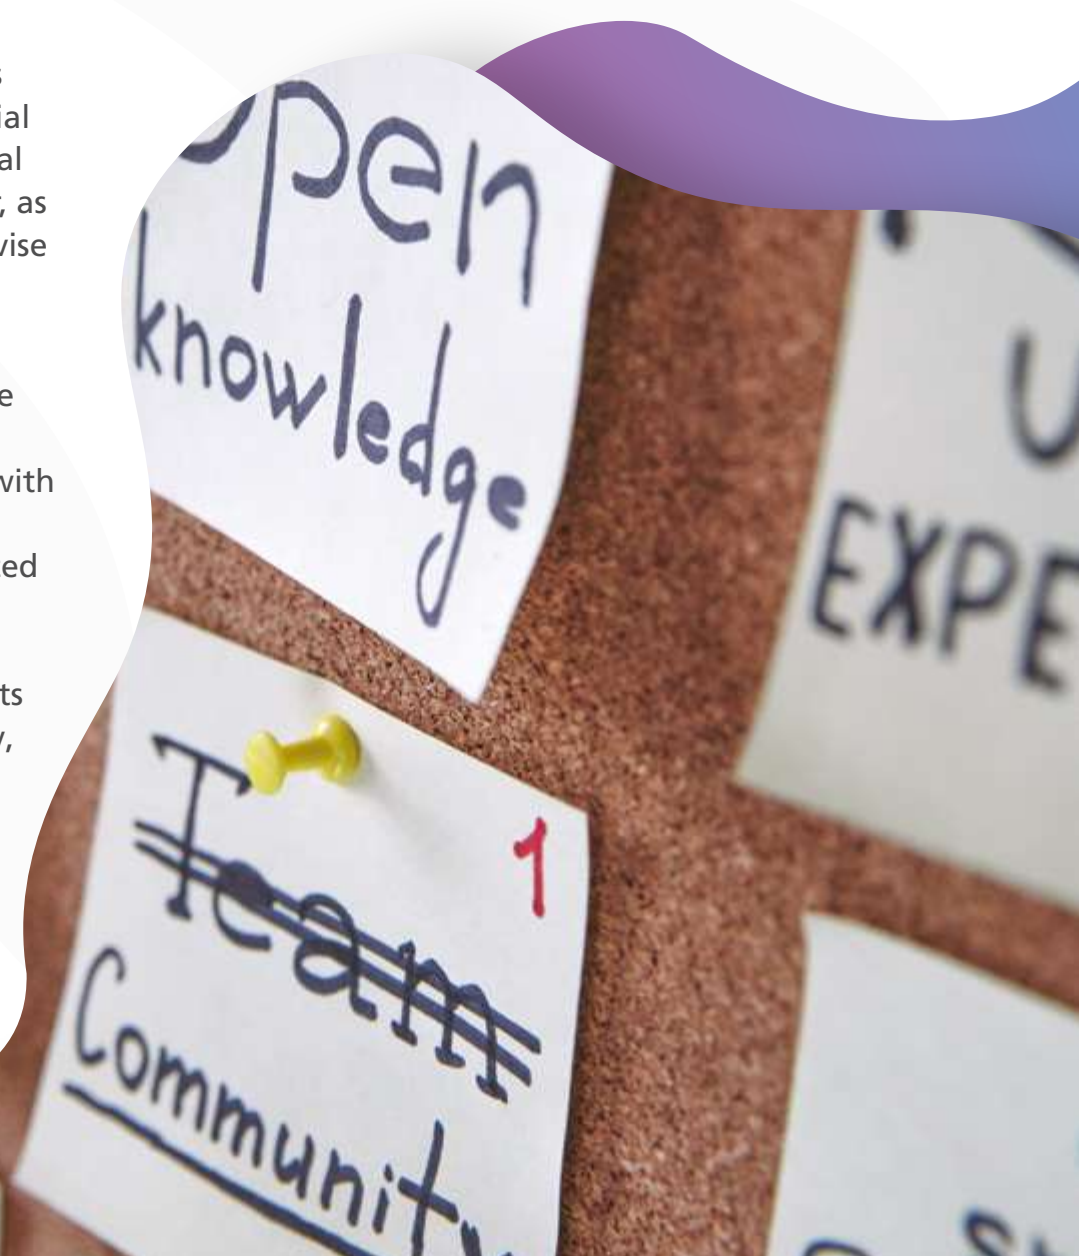 ial
al
, as
vise
e
with
ed
ts
y,
Open
knowledge
EXPE
1
Team
Community